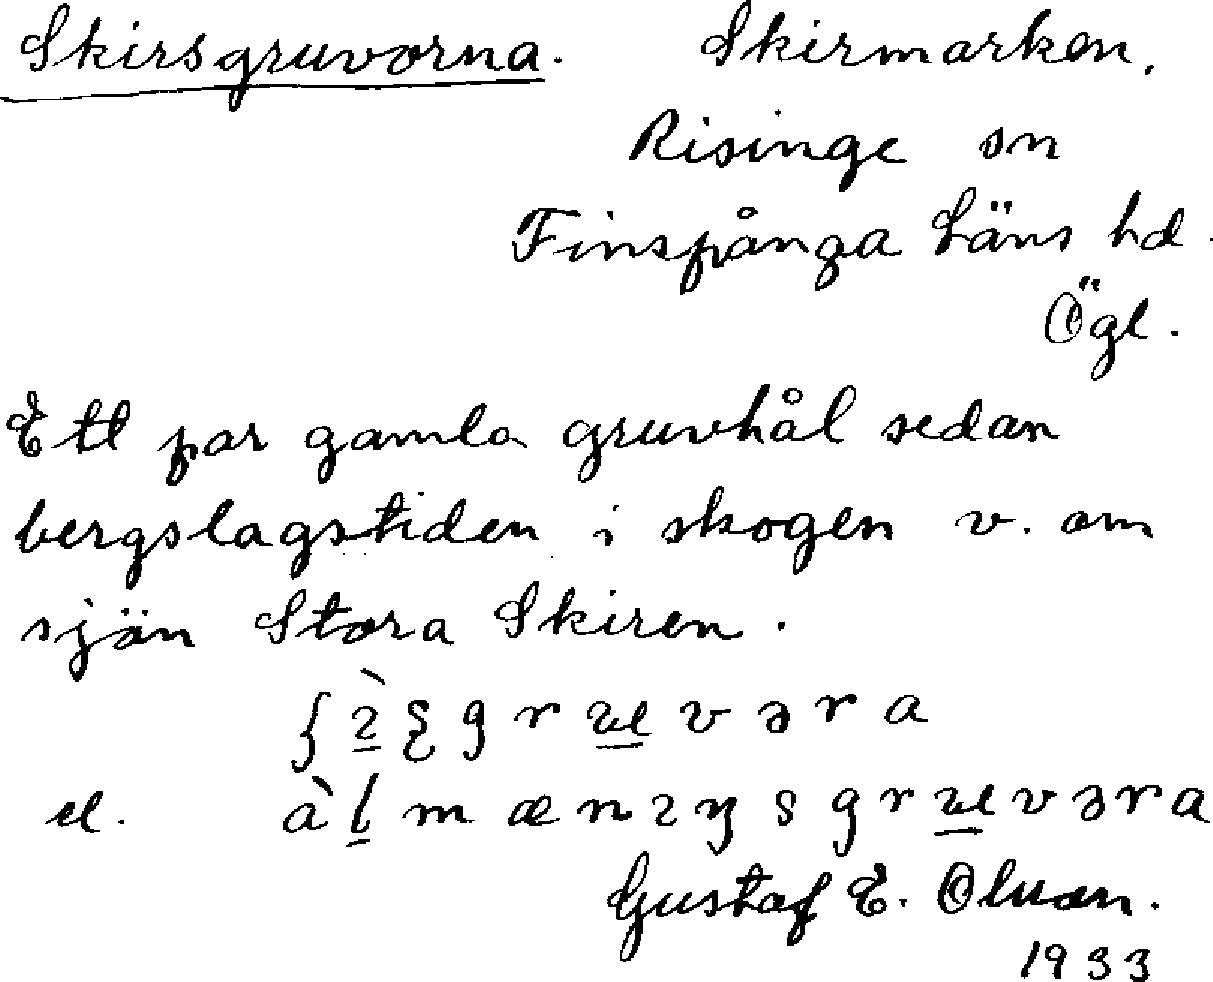 Skirsgruvorna. Skirmarken,
Risinge sn
Finspånga Läns hd.
Ögl.
Ett par gamla gruvhål sedan
bergslagstiden i skogen v. om
sjön Stora Skiren.
el.
Gustaf E. Olsson.
1933